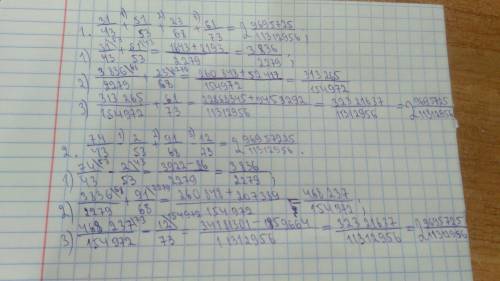 1. 31/43 + 51/53 + 23/68 + 61/73 = 2 9695725/11312956
1) 31/43 + 51/53 = 1643+2193/2279 = 3836/2279 ;
2) 3836/2279 + 23/68 = 260848+52417/154972 = 313265/154972
3) 313265/154972 + 61/73 = 22868345+9453292/11312956 = 32321637/11312956 = 2 9695725/11312956
2. 74/43 - 2/53 + 91/68 - 12/73 = 2 96957225/11312956 .
1) 74/43 - 2/53 = 3922-86/2279 = 3836/2279 ;
2) 3836/2279 + 91/68 = 260848+207389/154972 = 468237/154972 ;
3) 468237/154972 - 12/73 = 34181301-1859664/11312956 = 32321637/11312956 = 2 9695725/11312956